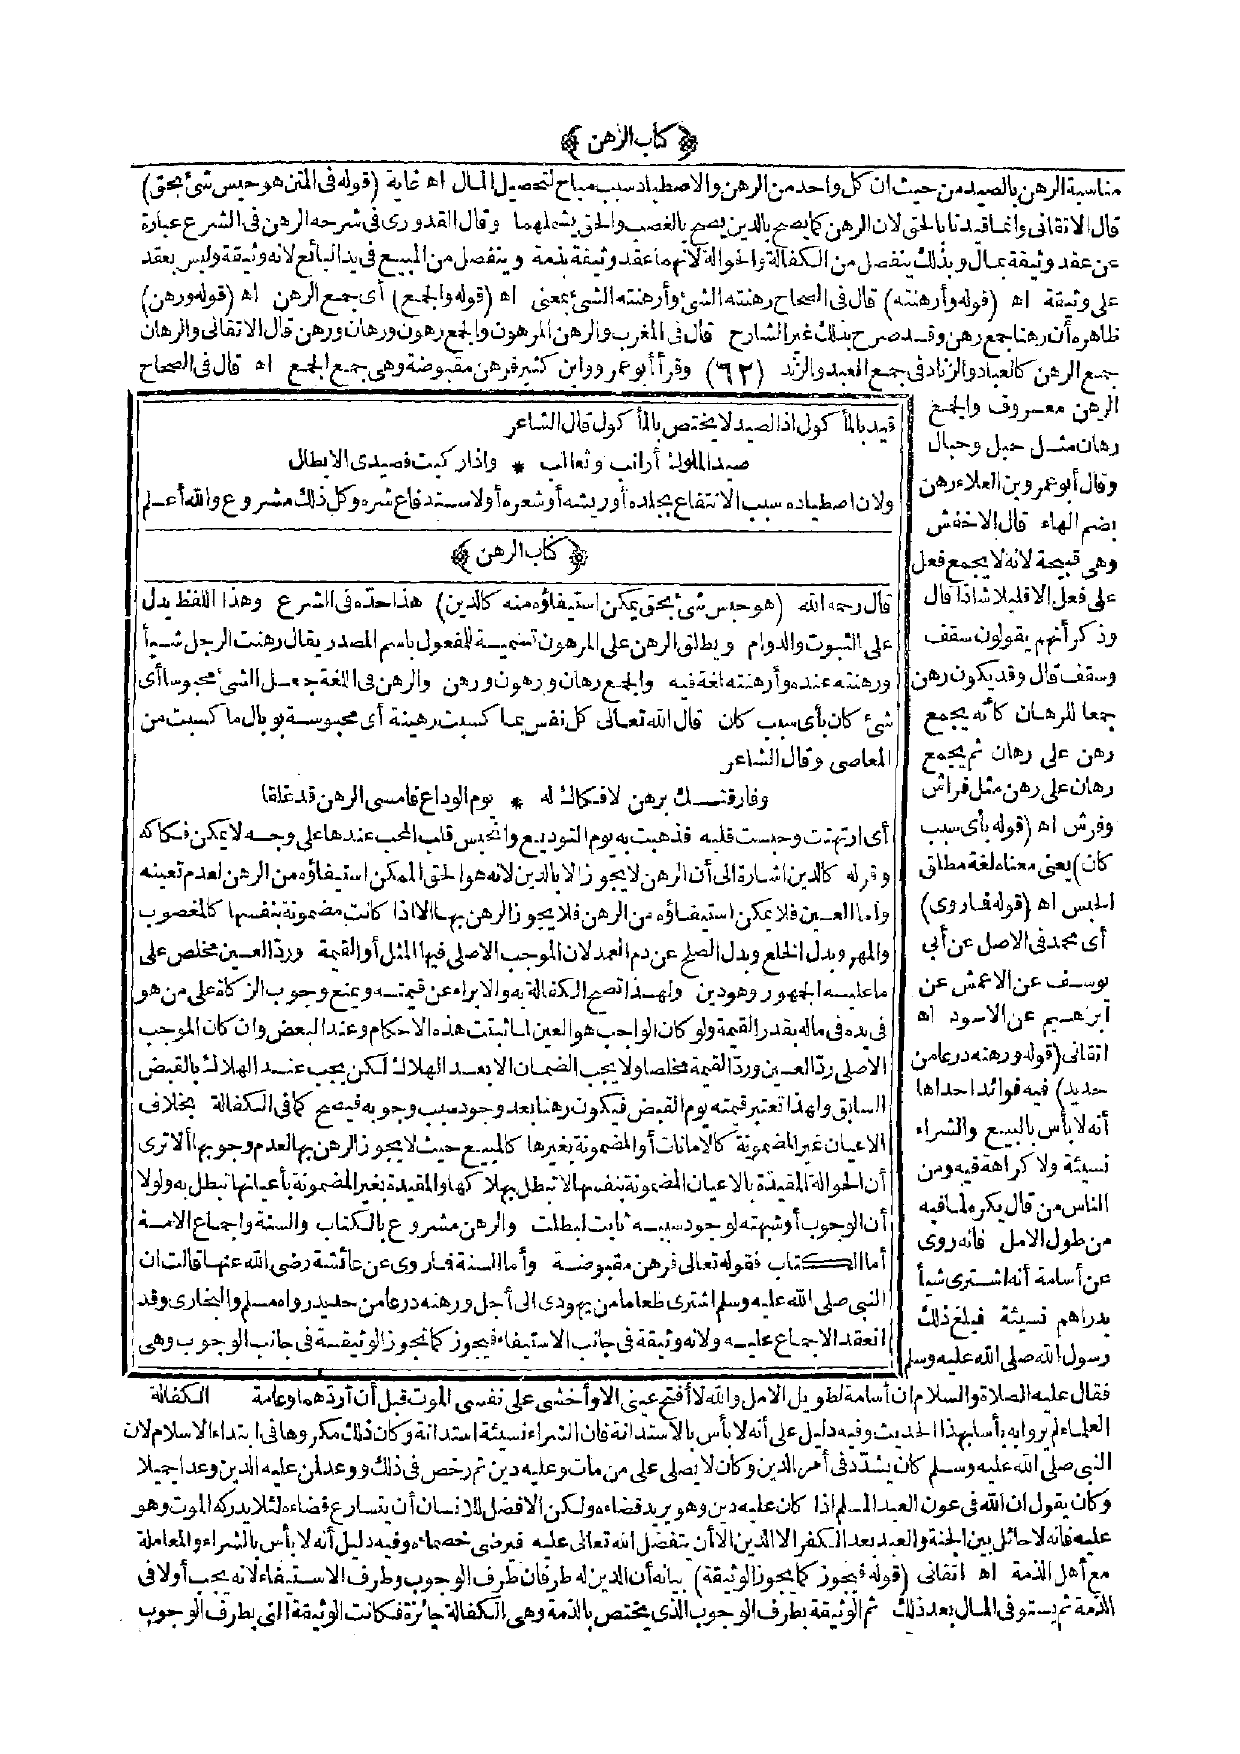 ﴿ كتاب الرهن ﴾
مناسبة الرهن بالصيد من حيث ان كل واحد من الرهن والاصطياد سبب مباح لتحصيل المال اه غاية (قوله فى المتن هو حبس شئ بحق)
قال الاتقانى وانما قيدنا بالحق لان الرهن كما يصح بالدين يصح بالغصب والحق يشملهما وقال القدورى فى شرحه الرهن فى الشرع عبارة
عن عقد وثيقة بمال وبذلك ينفصل من الكفالة والحوالة لانهما عقد وثيقة بذمة وينفصل من المبيع فى يد البائع لانه وثيقة وليس بعقد
على وثيقة اه (قوله وأرهنته) قال فى الصحاح رهنته الشئ وأرهنته الشئ بمعنى اه (قوله والجمع) أى جمع الرهن اه (قوله ورهن)
ظاهره أن رهنا جمع رهن وقد صرح بذلك غير الشارح قال فى المغرب والرهن المرهون والجمع رهون ورهان ورهن قال الاتقانى والرهان
جمع الرهن كالعباد والزناد فى جمع العبد والزند (٦٢) وقرأ أبو عمرو وابن كثير فرهن مقبوضة وهى جمع الجمع اه قال فى الصحاح
الرهن معروف والجمع
رهان مثل حبل وحبال
وقال أبو عمرو بن العلاء رهن
بضم الهاء قال الاخفش
وهى قبيحة لانه لا يجمع فعل
على فعل الا قليلا شاذا قال
وذكر أنهم يقولون سقف
وسقف قال وقد يكون رهن
جمعا للرهان كأنه يجمع
رهن على رهان ثم يجمع
رهان على رهن مثل فراش
وفرش اه (قوله بأى سبب
كان) يعنى معناه لغة مطلق
الحبس اه (قوله فما روى)
أى محمد فى الاصل عن أبى
يوسف عن الاعمش عن
ابرهيم عن الاسود اه
اتقانى (قوله ورهنه درعا من
حديد) فيه فوائد احداها
أنه لا بأس بالبيع والشراء
نسيئة ولا كراهة فيه ومن
الناس من قال يكره لما فيه
من طول الامل فانه روى
عن أسامة أنه اشترى شيأ
بدراهم نسيئة فبلغ ذلك
رسول الله صلى الله عليه وسلم
قيد بالمأكول اذ الصيد لا يختص بالمأكول قال الشاعر
صيد الملوك أرانب وثعالب * واذا ركبت فصيدى الابطال
ولان اصطياده سبب الانتفاع بجلده أو ريشه أو شعره أو لاستدفاع شره وكل ذلك مشروع والله أعلم
﴿ كتاب الرهن ﴾
قال رحمه الله (هو حبس شئ بحق يمكن استيفاؤه منه كالدين) هذا حده فى الشرع وهذا اللفظ يدل
على الثبوت والدوام ويطلق الرهن على المرهون تسمية للمفعول باسم المصدر يقال رهنت الرجل شيأ
ورهنته عنده وأرهنته لغة فيه والجمع رهان ورهون ورهن والرهن فى اللغة جعل الشئ محبوسا أى
شئ كان بأى سبب كان قال الله تعالى كل نفس بما كسبت رهينة أى محبوسة بوبال ما كسبت من
المعاصى وقال الشاعر
وفارقتك برهن لا فكاك له * يوم الوداع فامسى الرهن قد غلقا
أى ارتهنت وحبست قلبه فذهبت به يوم التوديع واحتبس قلب المحب عندها على وجه لا يمكن فكاكه
وقوله كالدين اشارة الى أن الرهن لا يجوز الا بالدين لانه هو الحق الممكن استيفاؤه من الرهن لعدم تعينه
وأما العين فلا يمكن استيفاؤه من الرهن فلا يجوز الرهن بها الا اذا كانت مضمونة بنفسها كالمغصوب
والمهر وبدل الخلع وبدل الصلح عن دم العمد لان الموجب الاصلى فيها المثل أو القيمة ورد العين مخلص على
ما عليه الجمهور وهو دين ولهذا تصح الكفالة به والابراء عن قيمته ويمنع وجوب الزكاة على من هو
فى يده فى ماله بقدر القيمة ولو كان الواجب هو العين لما ثبتت هذه الاحكام وعند البعض وان كان الموجب
الاصلى رد العين ورد القيمة مخلصا ولا يجب الضمان الا بعد الهلاك لكن يجب عند الهلاك بالقبض
السابق ولهذا تعتبر قيمته يوم القبض فيكون رهنا بعد وجود سبب وجوبه فيصح كما فى الكفالة بخلاف
الاعيان غير المضمونة كالامانات أو المضمونة بغيرها كالمبيع حيث لا يجوز الرهن بها لعدم وجوبها ألا ترى
أن الحوالة المقيدة بالاعيان المضمونة بنفسها لا تبطل بهلاكها والمقيدة بغير المضمونة بأعيانها تبطل به ولولا
أن الوجوب أو شبهته لوجود سببه ثابت لبطلت والرهن مشروع بالكتاب والسنة واجماع الامة
أما الكتاب فقوله تعالى فرهن مقبوضة وأما السنة فما روى عن عائشة رضى الله عنها قالت ان
النبى صلى الله عليه وسلم اشترى طعاما من يهودى الى أجل ورهنه درعا من حديد رواه مسلم والبخارى وقد
انعقد الاجماع عليه ولانه وثيقة فى جانب الاستيفاء فيجوز كما تجوز الوثيقة فى جانب الوجوب وهى
الكفالة
فقال عليه الصلاة والسلام ان أسامة لطويل الامل والله لا أفتح عينى الا وأخشى على نفسى الموت قبل أن أردهما وعامة
العلماء لم يروا به بأسا بهذا الحديث وفيه دليل على أنه لا بأس بالاستدانة فان الشراء نسيئة استدانة وكان ذلك مكروها فى ابتداء الاسلام لان
النبى صلى الله عليه وسلم كان يشدد فى أمر الدين وكان لا يصلى على من مات وعليه دين ثم رخص فى ذلك ووعد لمن عليه الدين وعدا جميلا
وكان يقول ان الله فى عون العبد المسلم اذا كان عليه دين وهو يريد قضاءه ولكن الافضل للانسان أن يتسارع قضاءه لئلا يدركه الموت وهو
عليه فانه لا حائل بين الجنة والعبد بعد الكفر الا الدين الا أن يتفضل الله تعالى عليه فيرضى خصماءه وفيه دليل أنه لا بأس بالشراء والمعاملة
مع أهل الذمة اه اتقانى (قوله فيجوز كما يجوز الوثيقة) بيانه أن الدين له طرفان طرف الوجوب وطرف الاستيفاء لانه يجب أولا فى
الذمة ثم يستوفى المال بعد ذلك ثم الوثيقة بطرف الوجوب الذى يختص بالذمة وهى الكفالة جائزة فكانت الوثيقة التى بطرف الوجوب